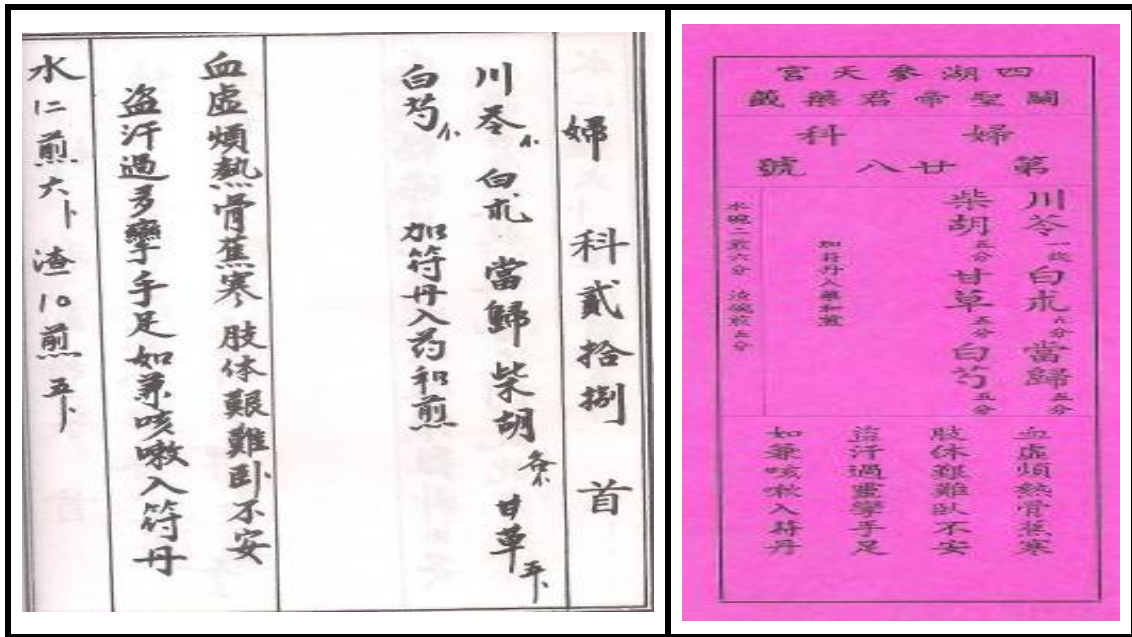 婦科貳拾捌首
川芩 白朮 當歸 柴胡 甘草
白芍 加符丹入药和煎
血虛煩熱骨蕉寒肢体艱難卧不安
盜汗過多孿手足如兼咳嗽入符丹
水仁煎六卜 渣10煎五卜
四湖參天宮
關聖帝君藥籤
婦科
第廿八號
川芩 白朮六分 當歸五分
柴胡五分 甘草五分 白芍五分
加符丹入藥和煎
水碗二煎六分 渣碗煎五分
血虛煩熱骨蕉寒
肢体艱難臥不安
盜汗過孿手足
如兼咳嗽入符丹